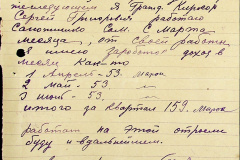 я Гранд. Кирлар
Сергей Григорьевич работаю
Сапожником Сам. С Марта
месяца, от своей работы
я имею заработок доход в
месяц как-то
1 Апрель - 53. марок
2 май - 53 "
3 июн - 53 "
итого за квартал 159. Марок
работат на этой отросле
буду и вдальнейшем.